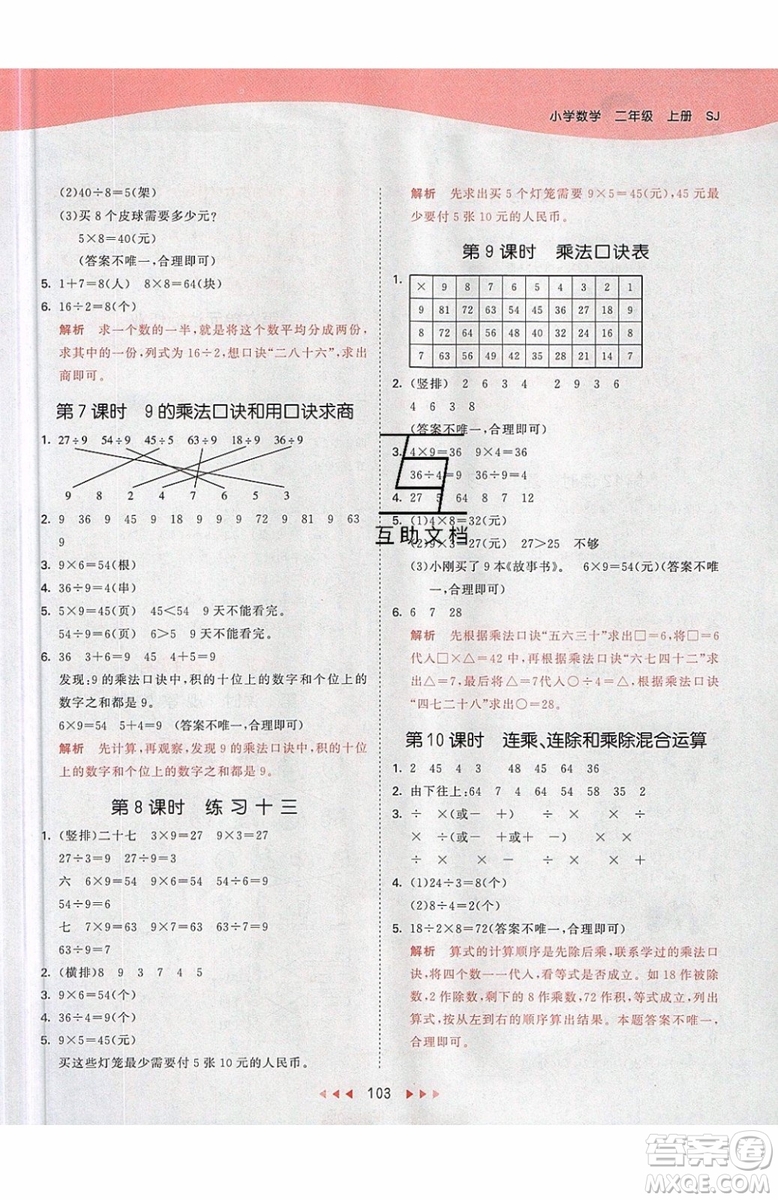 小学数学 二年级 上册 SJ
(2)40÷8=5(架)
(3)买 8 个皮球需要多少元?
5×8=40(元)
(答案不唯一,合理即可)
5. 1+7=8(人) 8×8=64(块)
6. 16÷2=8(个)
解析 求一个数的一半,就是将这个数平均分成两份,
求其中的一份,列式为 16÷2,想口诀“二八十六”,求出
商即可。
第 7 课时 9 的乘法口诀和用口诀求商
1. 27÷9 54÷9 45÷5 63÷9 18÷9 36÷9
9 8 2 4 7 6 5 3
2. 9 36 9 45 9 54 9 18 9 81 9 63
9
3. 9×6=54(根) 54÷9=6(串)
4. 36÷9=4(串)
5. 5×9=45(页) 45<54 9 天不能看完。
54÷9=6(页) 6>5 9 天不能看完。
6. 36 3+6=9 45 4+5=9
发现:9 的乘法口诀中,积的十位上的数字和个位上的
数字之和都是 9。
6×9=54 5+4=9 (答案不唯一,合理即可)
解析 先计算,再观察,发现 9 的乘法口诀中,积的十位
上的数字和个位上的数字之和都是 9。
第 8 课时 练 习 十 三
1. (竖排)二十七 3×9=27 9×3=27
27÷3=9 27÷9=3
六 9×6=54 6×9=54 54÷6=9
54÷9=6
七 7×9=63 9×7=63 63÷7=9
63÷9=7
2. (横排)8 9 3 7 4 5
3. 9×6=54(个)
4. 36÷9=4(个)
5. 9×5=45(元)
买这些灯笼最少需要付 5 张 10 元的人民币。
解析 先求出买 5 个灯笼需要 9×5=45(元),45 元最
少要付 5 张 10 元的人民币。
第 9 课时 乘法口诀表
1.
× 9 8 7 6 5 4 3 2 1
9 81 72 63 54 45 36 27 18 9
8 72 64 56 48 40 32 24 16 8
7 63 56 49 42 35 28 21 14 7
2. (竖排) 1 2 3 6 2 4 9
4 6 3 8
(答案不唯一,合理即可)
3. 4×9=36 9×4=36
36÷4=9 36÷9=4
4. 27 5 64 8 7 12
5. (1)4×8=32(元)
(2)9×3=27(元) 27>25 不够
(3)小刚买了 9 本《故事书》。 6×9=54(元)(答案
不唯一,合理即可)
6. 6 7 28
解析 先根据乘法口诀“五六三十”求出□=6,将□=6
代入□×△=42,再根据乘法口诀“六七四十二”求出
△=7,最后将△=7 代入○÷4=△,根据乘法口诀
“四七二十八”求出○=28。
第 10 课时 连乘、连除和乘除混合运算
1. 2 45 4 3 48 64 36
2. 由下往上:64 7 4 64 54 8 9
3. ÷ ×(或÷ -) × ÷ + ÷
÷(或- +或÷ ÷) × + ÷ ×
÷ × × ÷ × ÷
4. (1)24÷3=8(个)
(2)8÷4=2(个)
5. 18÷2×8=72(答案不唯一,合理即可)
解析 算式的计算顺序是先除后乘,联系学过的乘法口
诀,将这些数字一一代入,看等式是否成立。如 18 作被除
数,2 作除数,剩下的数 8 作乘数,72 作积,等式成立,列出
算式,按从左到右的顺序算出结果。本题答案不唯一,
合理即可。
互助文档
103
答案圈
MXQE.COM